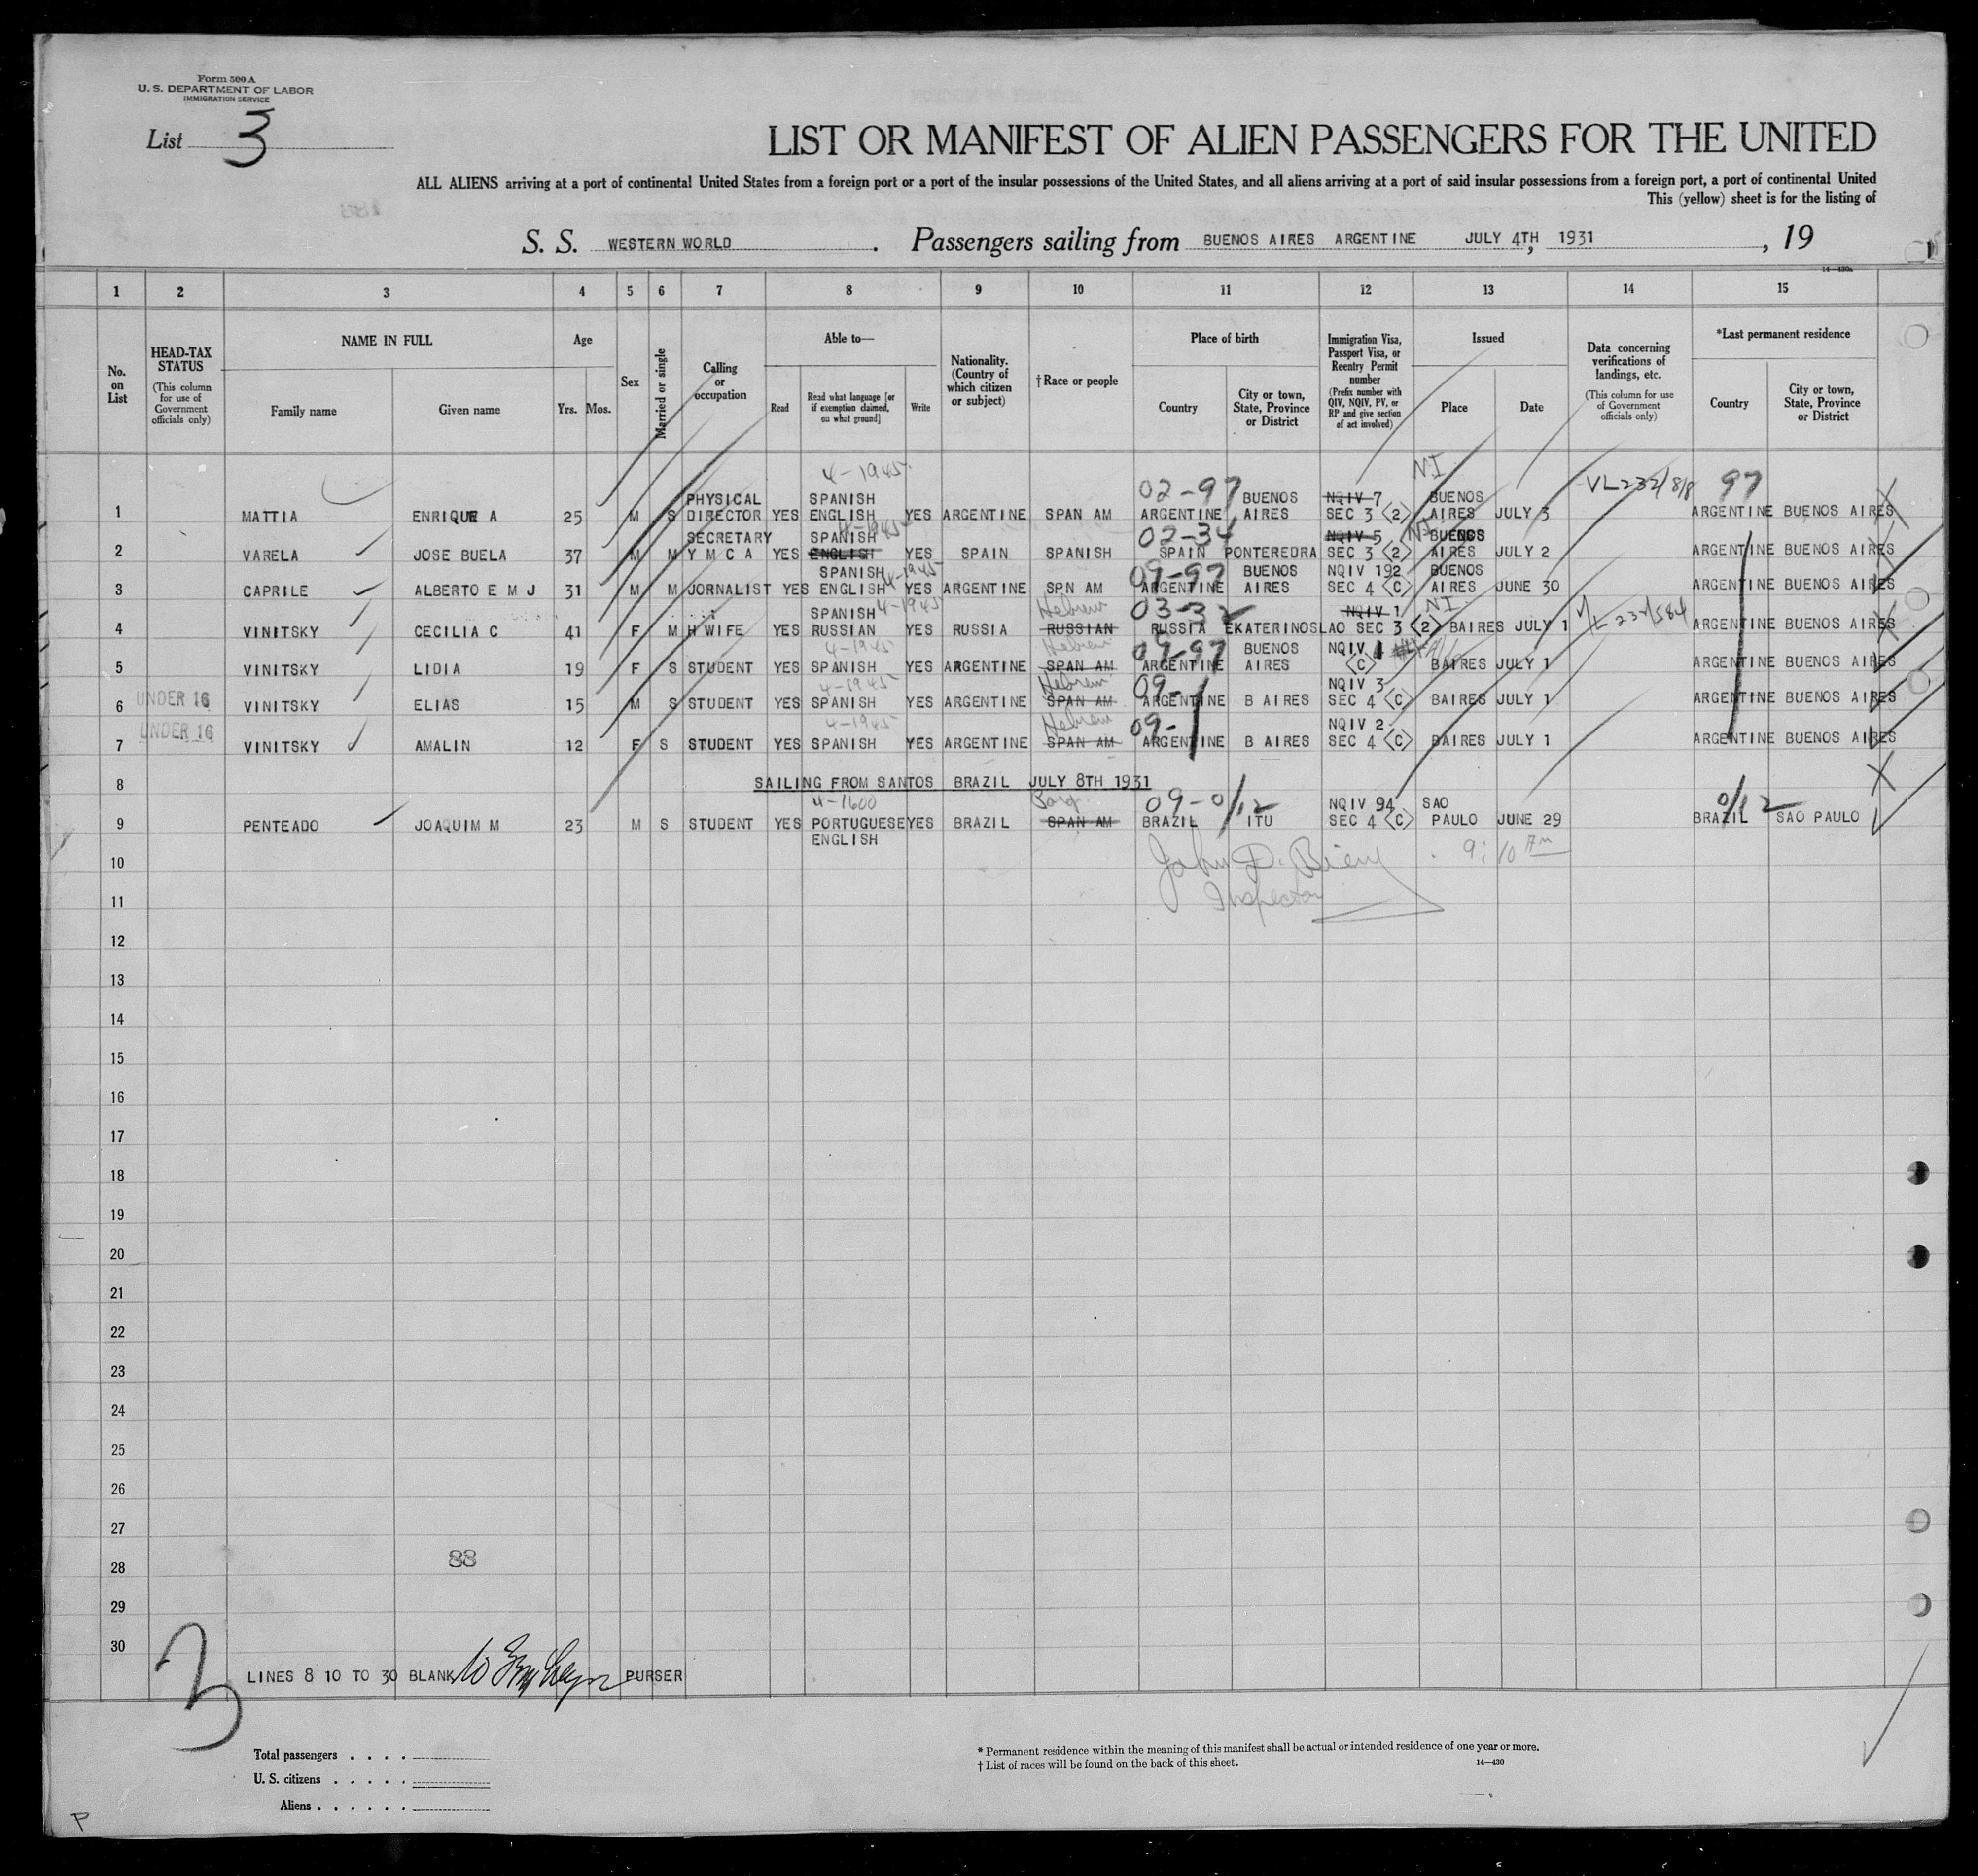 Form 500 A
U. S. DEPARTMENT OF LABOR
IMMIGRATION SERVICE
List 3
LIST OR MANIFEST OF ALIEN PASSENGERS FOR THE UNITED
ALL ALIENS arriving at a port of continental United States from a foreign port or a port of the insular possessions of the United States, and all aliens arriving at a port of said insular possessions from a foreign port, a port of continental United
This (yellow) sheet is for the listing of
S. S. WESTERN WORLD . Passengers sailing from BUENOS AIRES ARGENTINE JULY 4TH, 1931 , 19
14—430a
1 2 3 4 5 6 7 8 9 10 11 12 13 14 15
No. on List
HEAD-TAX STATUS (This column for use of Government officials only)
NAME IN FULL
Family name Given name
Age
Yrs. Mos.
Sex
Married or single
Calling or occupation
Able to—
Read
Read what language [or if exemption claimed, on what ground]
Write
Nationality. (Country of which citizen or subject)
† Race or people
Place of birth
Country
City or town, State, Province or District
Immigration Visa, Passport Visa, or Reentry Permit number (Prefix number with QIV, NQIV, PV, or RP and give section of act involved)
Issued
Place Date
Data concerning verifications of landings, etc. (This column for use of Government officials only)
*Last permanent residence
Country
City or town, State, Province or District
4-1945 02-97 NI VL232/818 97
PHYSICAL SPANISH BUENOS NQIV 7 BUENOS
1 MATTIA ENRIQUE A 25 M S DIRECTOR YES ENGLISH YES ARGENTINE SPAN AM ARGENTINE AIRES SEC 3 <2> AIRES JULY 3 ARGENTINE BUENOS AIRES
SECRETARY SPANISH 4-1945 02-34 NQIV 5 NI BUENOS
2 VARELA JOSE BUELA 37 M M Y M C A YES ENGLISH YES SPAIN SPANISH SPAIN PONTEREDRA SEC 3 <2> AIRES JULY 2 ARGENTINE BUENOS AIRES
SPANISH 4-1945 09-97 BUENOS NQIV 192 BUENOS
3 CAPRILE ALBERTO E M J 31 M M JORNALIST YES ENGLISH YES ARGENTINE SPN AM ARGENTINE AIRES SEC 4 <C> AIRES JUNE 30 ARGENTINE BUENOS AIRES
SPANISH 4-1945 Hebrew 03-32 NQIV 1 NI V/L 232/584
4 VINITSKY CECILIA C 41 F M H WIFE YES RUSSIAN YES RUSSIA RUSSIAN RUSSIA EKATERINOSLAO SEC 3 <2> BAIRES JULY 1 ARGENTINE BUENOS AIRES
4-1945 Hebrew 09-97 BUENOS NQIV 1
5 VINITSKY LIDIA 19 F S STUDENT YES SPANISH YES ARGENTINE SPAN AM ARGENTINE AIRES <C> BAIRES JULY 1 ARGENTINE BUENOS AIRES
4-1945 Hebrew 09- NQIV 3
6 UNDER 16 VINITSKY ELIAS 15 M S STUDENT YES SPANISH YES ARGENTINE SPAN AM ARGENTINE B AIRES SEC 4 <C> BAIRES JULY 1 ARGENTINE BUENOS AIRES
4-1945 Hebrew 09- NQIV 2
7 UNDER 16 VINITSKY AMALIN 12 F S STUDENT YES SPANISH YES ARGENTINE SPAN AM ARGENTINE B AIRES SEC 4 <C> BAIRES JULY 1 ARGENTINE BUENOS AIRES
8 SAILING FROM SANTOS BRAZIL JULY 8TH 1931
4-1600 Port 09-0/12 NQIV 94 SAO 0/12
9 PENTEADO JOAQUIM M 23 M S STUDENT YES PORTUGUESE YES BRAZIL SPAN AM BRAZIL ITU SEC 4 <C> PAULO JUNE 29 BRAZIL SAO PAULO
ENGLISH
10 John D. 9:10 AM
Inspector
11
12
13
14
15
16
17
18
19
20
21
22
23
24
25
26
27
28
88
29
30
3
LINES 8 10 TO 30 BLANK PURSER
Total passengers . . . .
U. S. citizens . . . . .
Aliens . . . . . .
* Permanent residence within the meaning of this manifest shall be actual or intended residence of one year or more.
† List of races will be found on the back of this sheet.
14—430
P